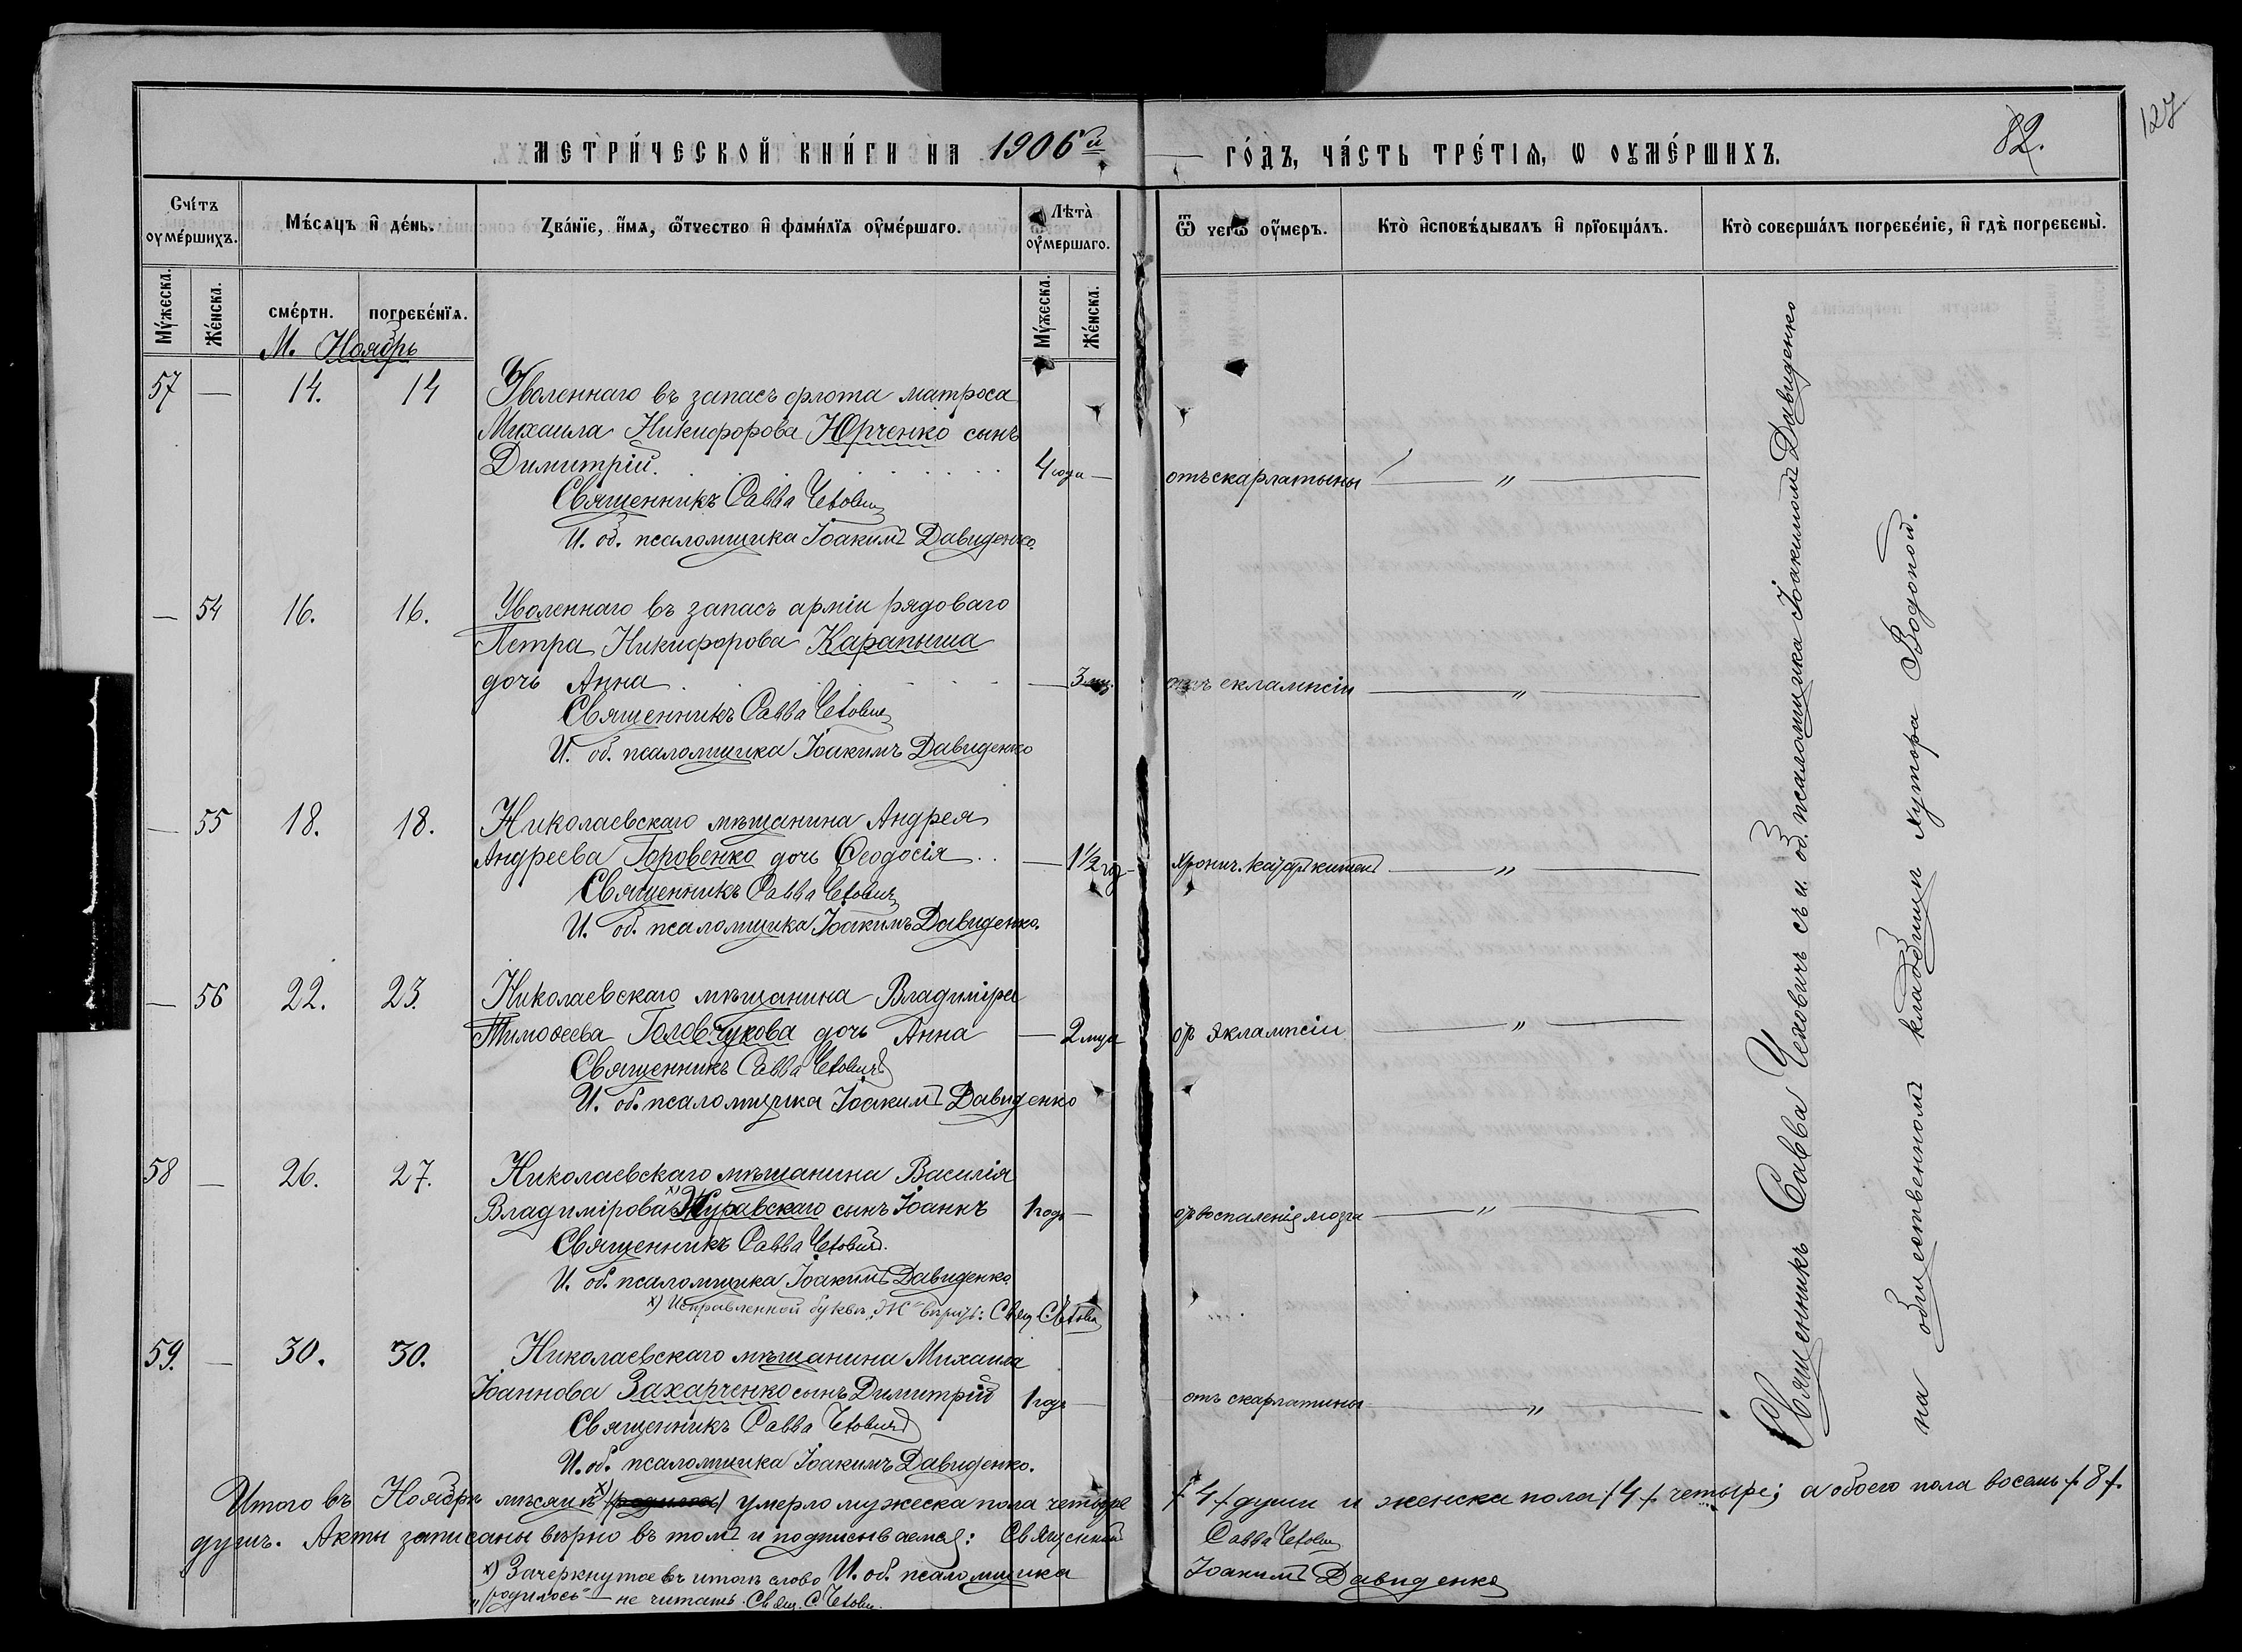 МЕТРИ́ЧЕСКОЙ КНИ́ГИ НА 1906й ГО́ДЪ, ЧА́СТЬ ТРЕ́ТІѦ, Ѡ ОУМЕ́РШИХЪ.
82.
127
Счетъ оумершихъ.
Мѣсяцъ и день.
Званіе, имя, отчество и фамилія оумершаго.
Лѣта оумершаго.
Ѿ чегѡ оумеръ.
Кто исповѣдывалъ и пріобщалъ.
Кто совершалъ погребеніе, и гдѣ погребены.
Мужеска.
Женска.
смерти.
погребенія.
Мужеска.
Женска.
М. Ноябрь
57 — 14. 14 Уволеннаго въ запасъ флота матроса
Михаила Никифорова Юрченко сынъ
Димитрій. 4 года — отъ скарлатыны — " —
Священникъ Савва Чехович
И. об. псаломщика Іоакимъ Давиденко.
— 54 16. 16. Уволеннаго въ запасъ арміи рядоваго
Петра Никифорова Карапыша
дочь Анна — 3 мц. отъ еклампсіи — " —
Священникъ Савва Чехович
И. об. псаломщика Іоакимъ Давиденко
— 55 18. 18. Николаевскаго мѣщанина Андрея
Андреева Горовенко дочь Ѳеодосія — 1½ год хронич. катар кишек — " —
Священникъ Савва Чехович
И. об. псаломщика Іоакимъ Давиденко.
— 56 22. 23. Николаевскаго мѣщанина Владиміра
Тимоѳеева Головчукова дочь Анна — 2 мца от эклампсіи — " —
Священникъ Савва Чехович
И. об. псаломщика Іоакимъ Давиденко
58 — 26. 27. Николаевскаго мѣщанина Василія
Владимірова х) Журавскаго сынъ Іоаннъ 1 годъ — от воспаленія мозга — " —
Священникъ Савва Чехович.
И. об. псаломщика Іоакимъ Давиденко
х) Исправленной буквѣ „Ж" вѣрить: Свящ. С. Чехович
59. — 30. 30. Николаевскаго мѣщанина Михаила
Іоаннова Захарченко сынъ Димитрій 1 годъ — отъ скарлатины — " —
Священникъ Савва Чехович
И. об. псаломщика Іоакимъ Давиденко.
Священникъ Савва Чеховичъ съ и. об. псаломщика Іоакимомъ Давиденко
на общественномъ кладбищи хутора Водопой.
Итого въ Ноябрѣ мѣсяцѣ х) (родилось) умерло мужеска пола четыре /4/ души и женска пола /4/ четыре; а обоего пола восемь /8/
душъ. Акты записаны вѣрно въ томъ и подписываемся: Священникъ Савва Чехович
х) Зачеркнутое въ итогѣ слово И. об. псаломщика Іоакимъ Давиденко
„родилось" — не читать. Свящ. С. Чехович.